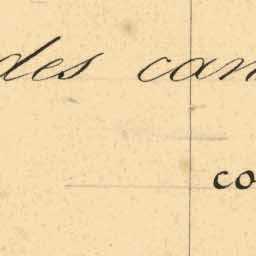 des can
co